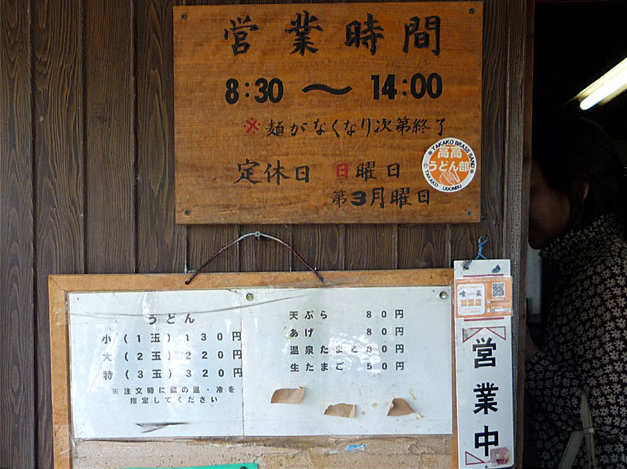 営業時間
8:30 〜 14:00
※麺がなくなり次第終了
定休日 日曜日
第3月曜日
TAKAKO BRASS BAND
高高
うどん部
TAKAKO UDONBU
うどん
小(1玉)130円
大(2玉)220円
特(3玉)320円
※注文時に麺の温・冷を
指定してください
天ぷら 80円
あげ 80円
温泉たまご 60円
生たまご 50円
営業中